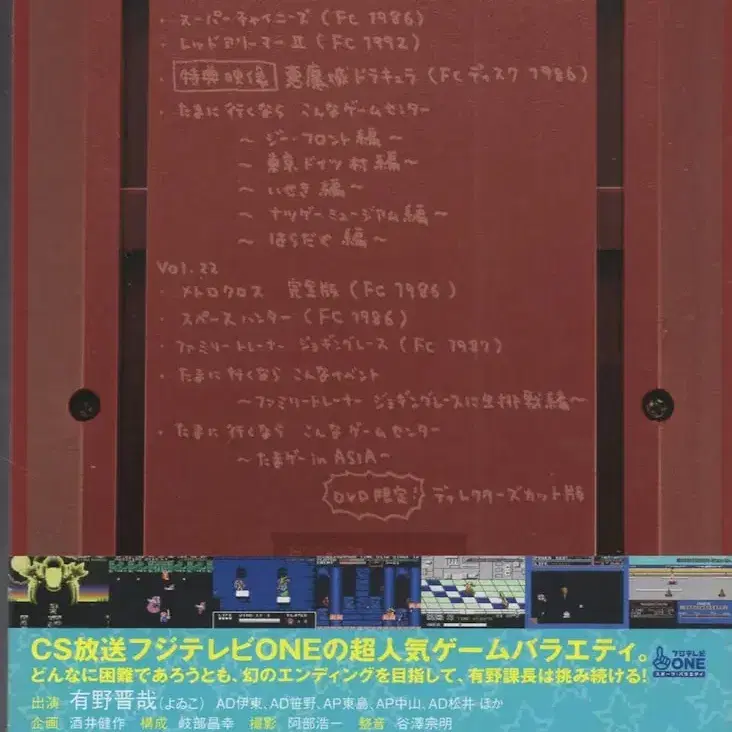 ・スーパーチャイニーズ (FC 1986)
・レッドアリーマーⅡ (FC 1992)
・特典映像 悪魔城ドラキュラ (FCディスク 1986)
・たまに行くなら こんなゲームセンター
～ジー・フロント編～
～東京ドイツ村編～
～いせき編～
～ナツゲーミュージアム編～
～はらだや編～
Vol.22
・メトロクロス 完全版 (FC 1986)
・スペースハンター (FC 1986)
・ファミリートレーナー ジョギングレース (FC 1987)
・たまに行くなら こんなイベント
～ファミリートレーナー ジョギングレースに生挑戦編～
・たまに行くなら こんなゲームセンター
～たまゲー in ASIA～
DVD限定! ディレクターズカット版
CS放送フジテレビONEの超人気ゲームバラエティ。
どんなに困難であろうとも、幻のエンディングを目指して、有野課長は挑み続ける!
フジテレビ
ONE
スポーツ・バラエティ
出演 有野晋哉(よゐこ) AD伊東、AD笹野、AP東島、AP中山、AD松井 ほか
企画 酒井健作 構成 岐部昌幸 撮影 阿部浩一 整音 谷澤宗明